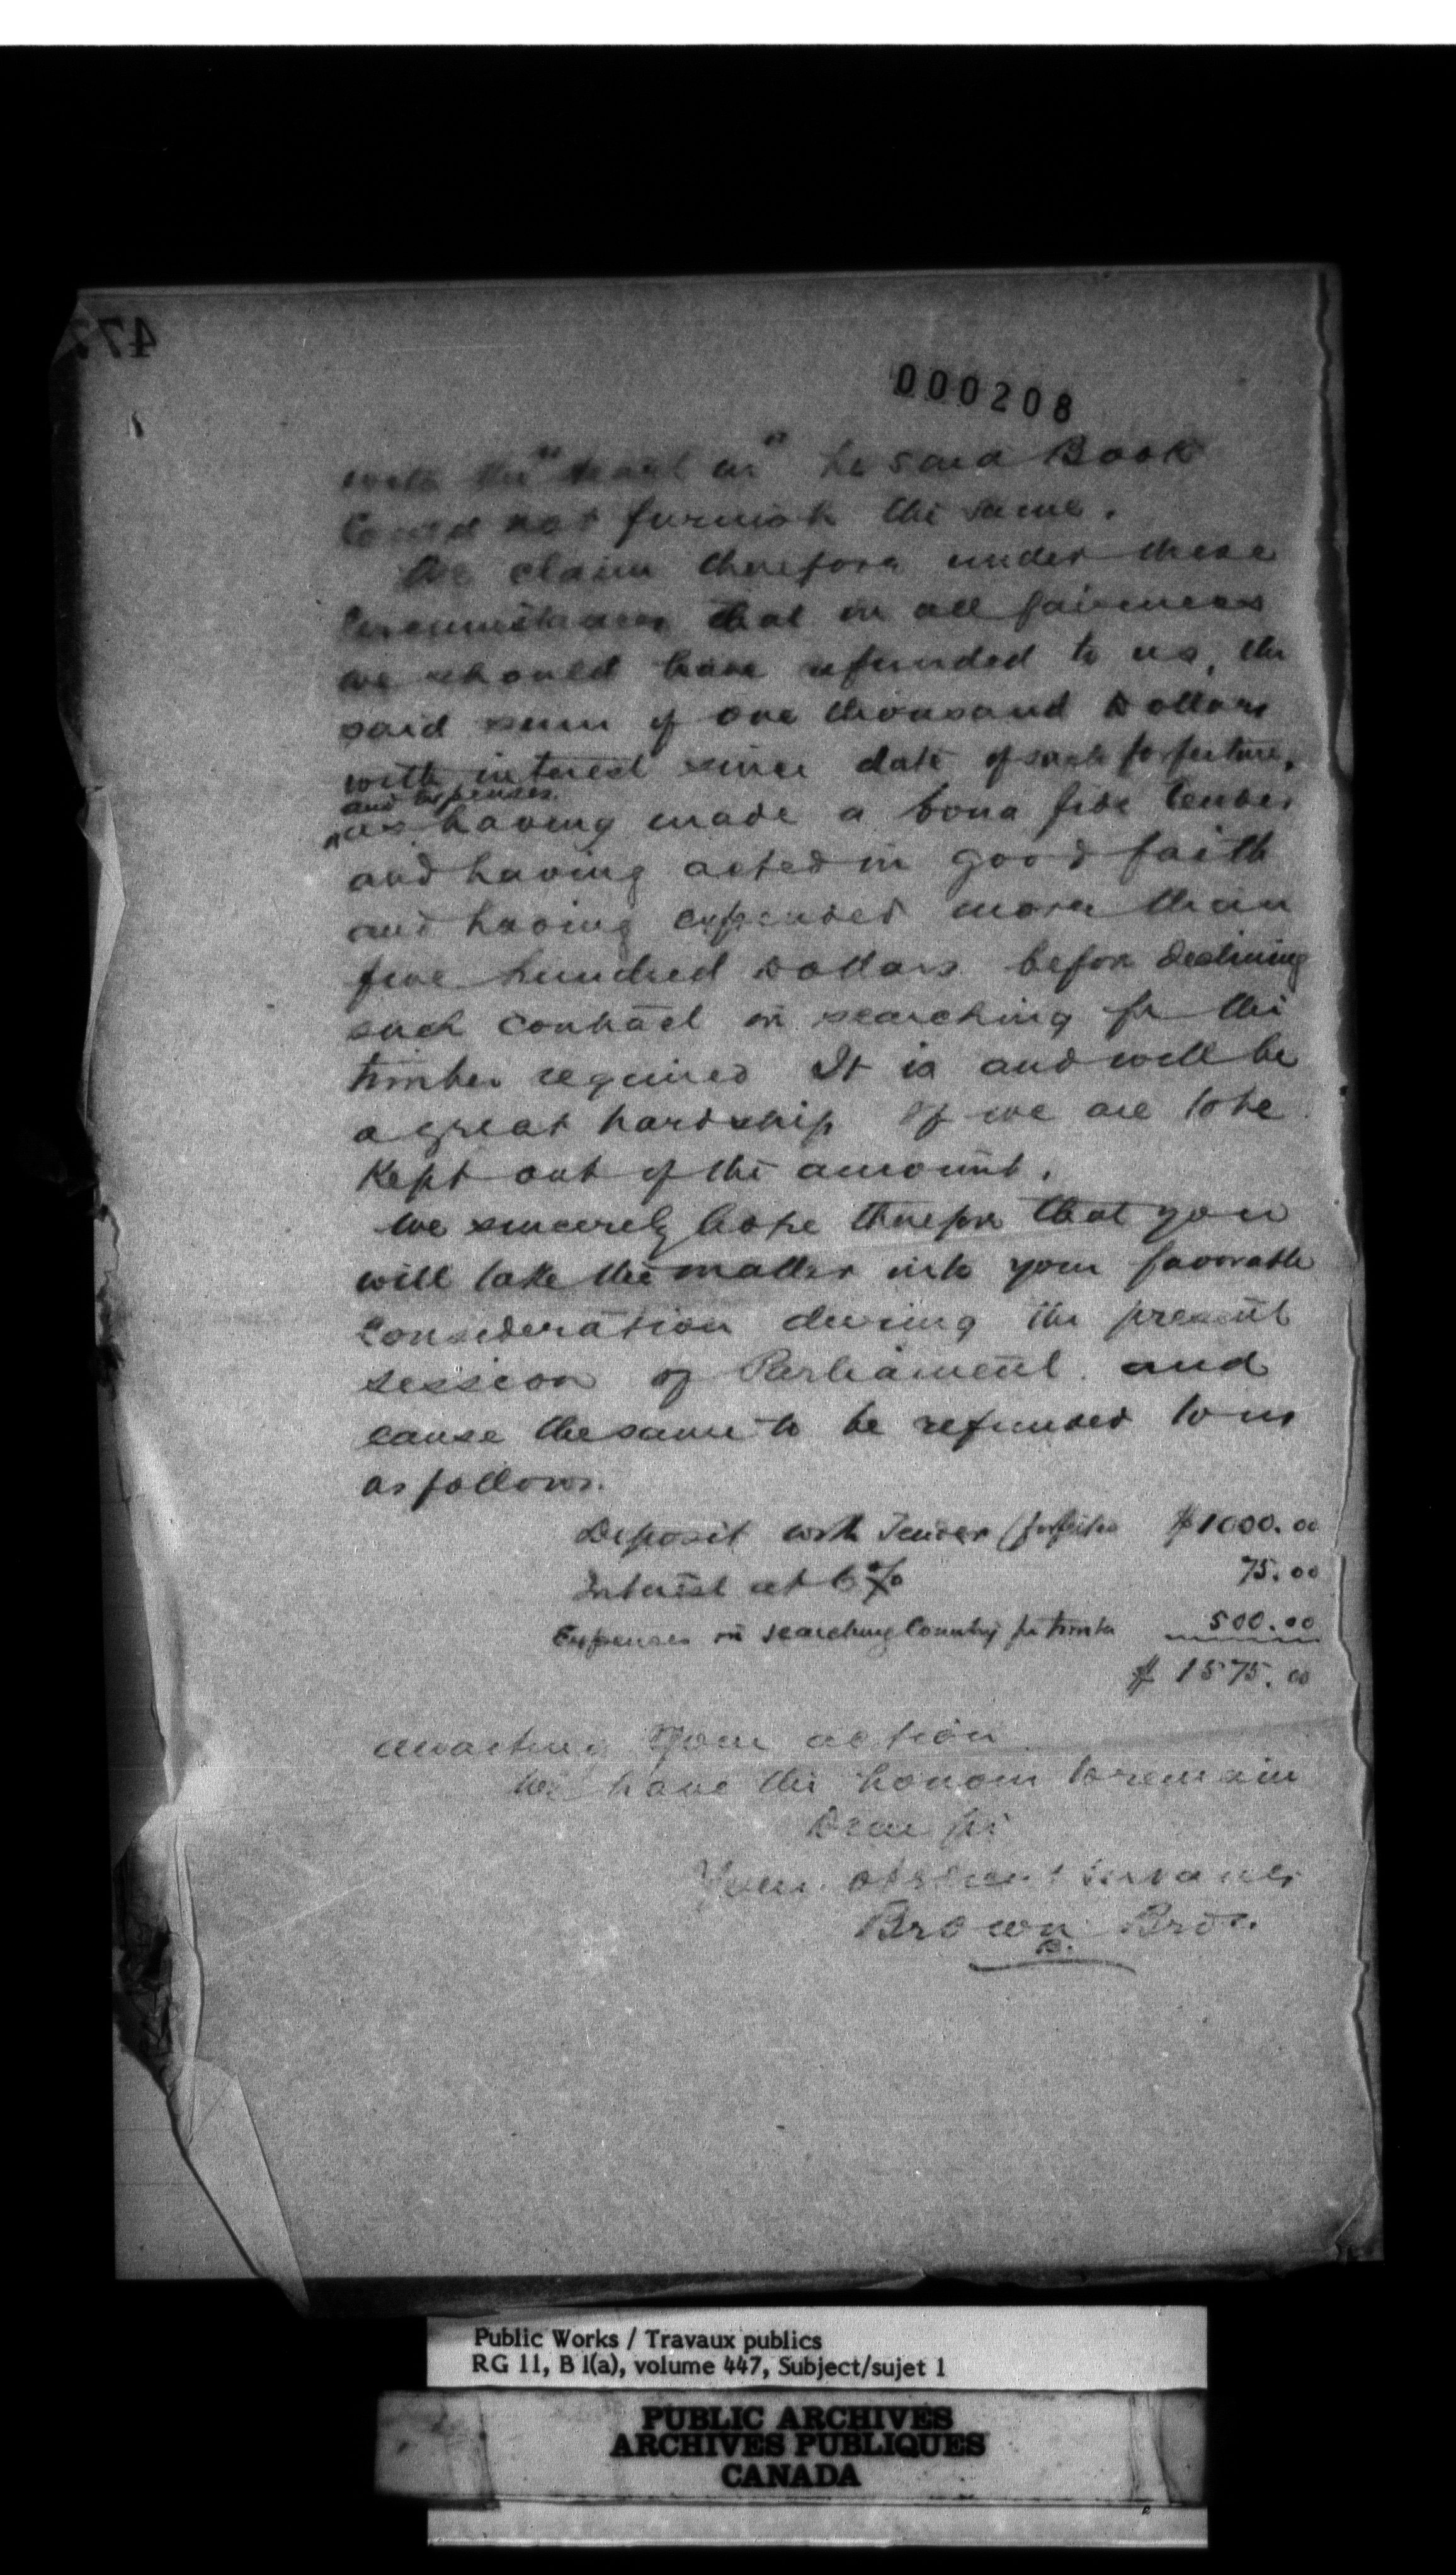 000208
with the " in" he said Book
Could not furnish the same.
We claim therefore under these
Circumstances that in all fairness
we should have refunded to us, the
said sum of one thousand Dollars
with interest since date of such forfeiture,
and expenses.
as having made a bona fide tender
and having acted in good faith
and having expended more than
five hundred Dollars before declining
such contract in searching for the
timber required It is and will be
a great hardship if we are to be
Kept out of the amount.
We sincerely hope therefore that you
will take the matter into your favorable
Consideration during the present
session of Parliament and
cause the same to be refunded to us
as follows.
Deposit with Tender (forfeited $1000.00
Interest at 6% 75.00
Expenses in searching Country for timber 500.00
$ 1575.00
Awaiting Your action
We have the honour to remain
Dear Sir
Your obedient servants
Brown Bros.
B.
Public Works / Travaux publics
RG 11, B 1(a), volume 447, Subject/sujet 1
PUBLIC ARCHIVES
ARCHIVES PUBLIQUES
CANADA